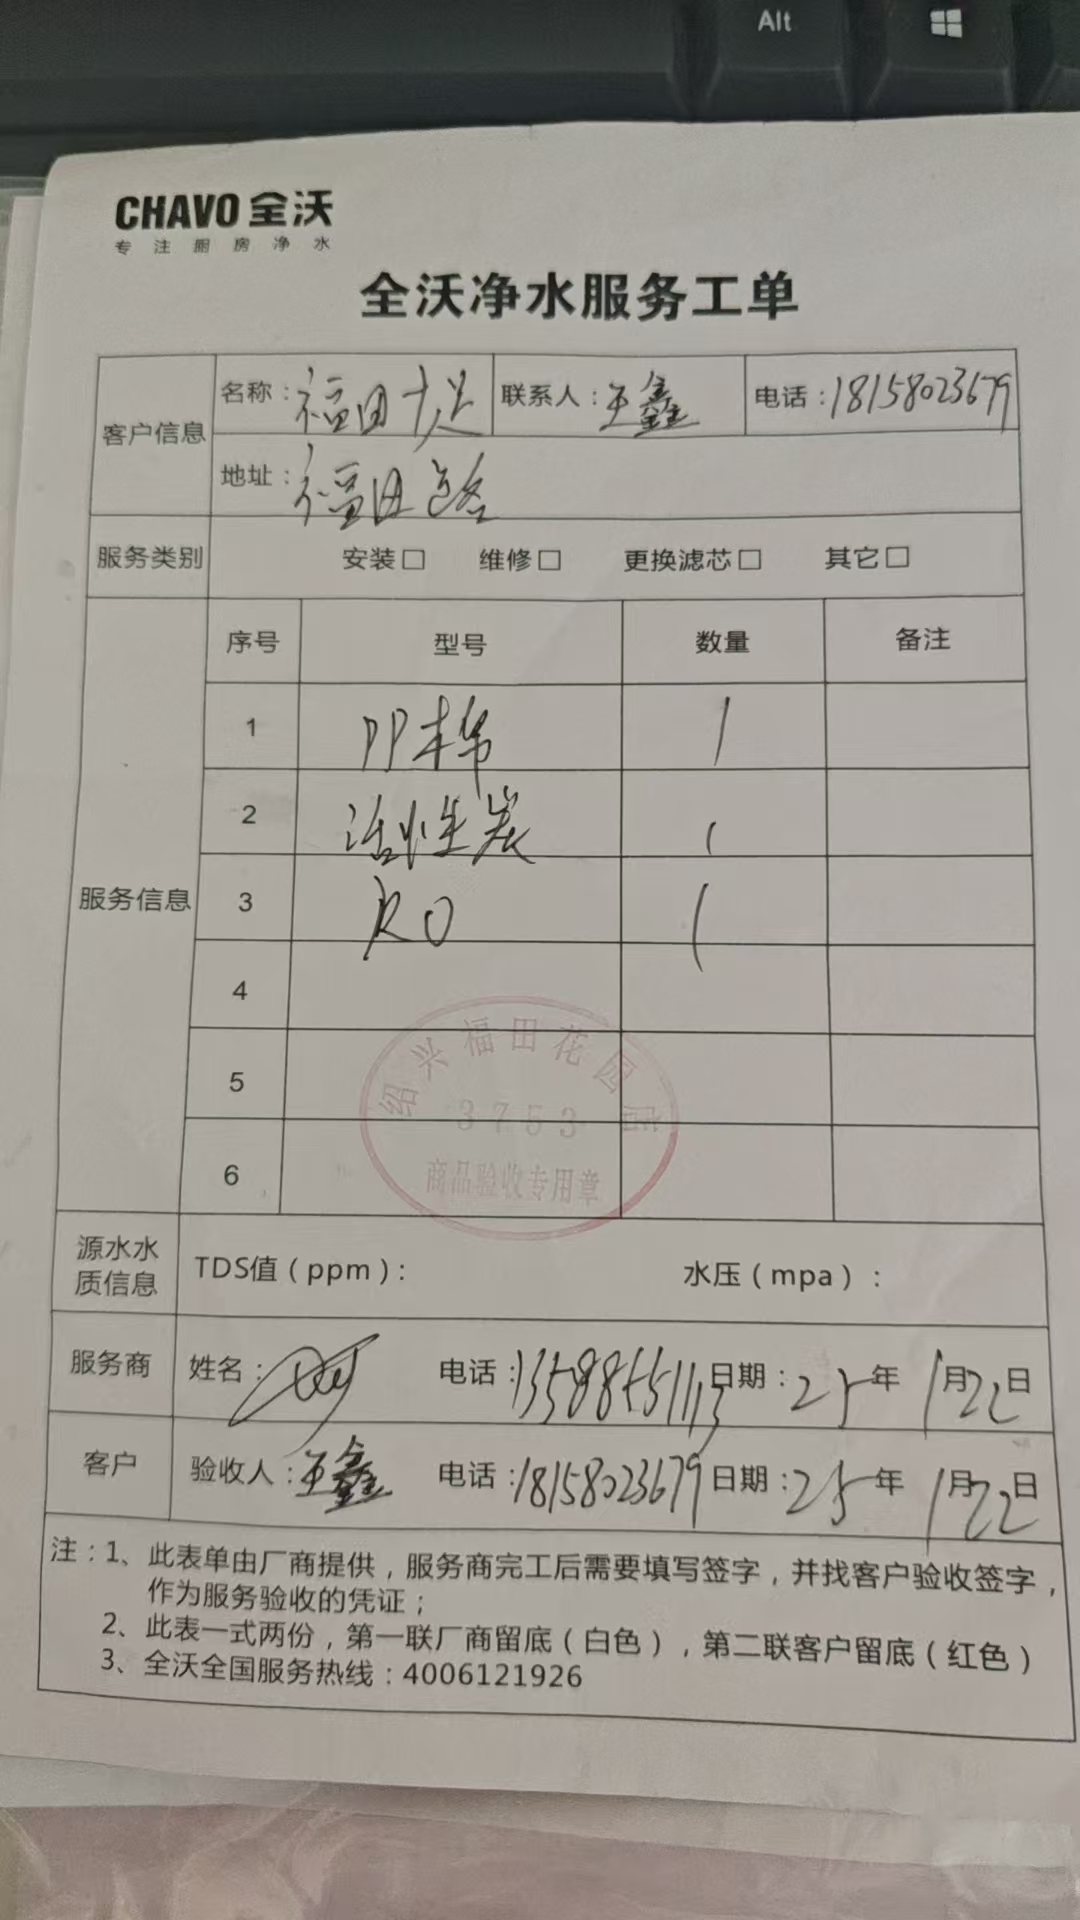 Alt
CHAVO 全沃
专注厨房净水
全沃净水服务工单
客户信息 名称：福田 联系人：王鑫 电话：18158023679
地址：福田路
服务类别 安装□ 维修□ 更换滤芯□ 其它□
服务信息 序号 型号 数量 备注
1 PP棉 1
2 活性炭 1
3 RO 1
4
5
6
绍兴福田花园店
3753
商品验收专用章
源水水质信息 TDS值（ppm）： 水压（mpa）：
服务商 姓名： 电话：13588551113 日期：25年1月22日
客户 验收人：王鑫 电话：18158023679 日期：25年1月22日
注：1、此表单由厂商提供，服务商完工后需要填写签字，并找客户验收签字，
作为服务验收的凭证；
2、此表一式两份，第一联厂商留底（白色），第二联客户留底（红色）
3、全沃全国服务热线：4006121926